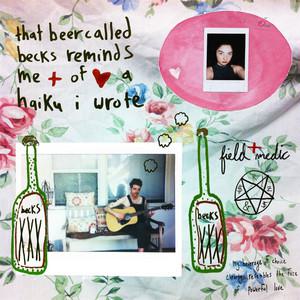 that beer called
becks reminds
me + of ♥ a
haiku i wrote
field + medic
becks
XXX
becks
XXX
my beverage of choice
closely resembles the fire
powerful love